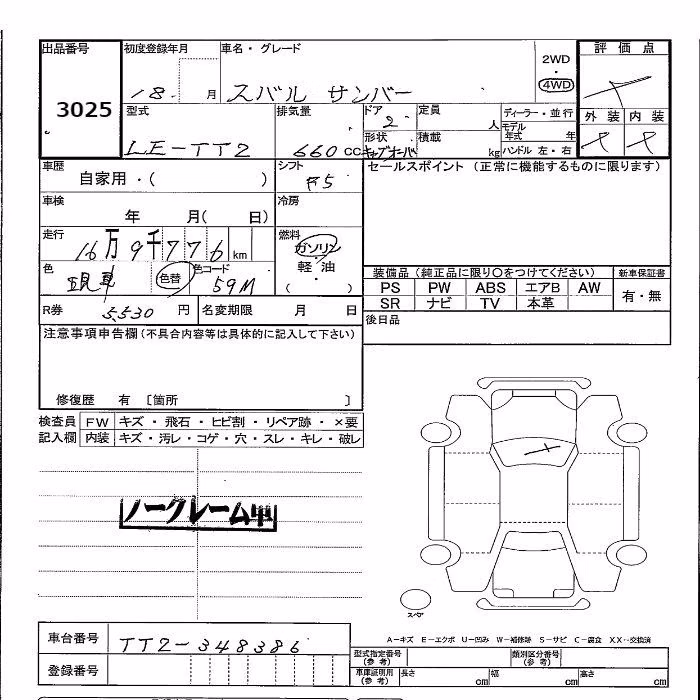 出品番号 初度登録年月 車名・グレード 2WD ・ 4WD 評価点
3025 18. 月 スバル サンバー
型式 排気量 ドア 2 定員 人 ディーラー・並行 外装 内装
LE-TT2 660 cc 形状 積載 kg モデル年式 年 ハンドル 左・右
車歴 自家用・( ) シフト F5 セールスポイント (正常に機能するものに限ります)
車検 年 月( 日) 冷房
走行 16万9千776km 燃料 ガソリン・軽油・( )
色 色替 色コード 59M
装備品 (純正品に限り〇をつけてください) 新車保証書
PS PW ABS エアB AW 有・無
SR ナビ TV 本革
R券 5,530 円 名変期限 月 日 後日品
注意事項申告欄(不具合内容等は具体的に記入して下さい)
修復歴 有 〔箇所 〕
検査員 FW キズ・飛石・ヒビ割・リペア跡・×要
記入欄 内装 キズ・汚レ・コゲ・穴・スレ・キレ・破レ
ノークレーム車
スペア
A-キズ E-エクボ U-凹み W-補修跡 S-サビ C-腐食 XX-交換済
車台番号 TT2-348386 型式指定番号(参考) 類別区分番号(参考)
登録番号 車庫証明用(参考) 長さ cm 幅 cm 高さ cm